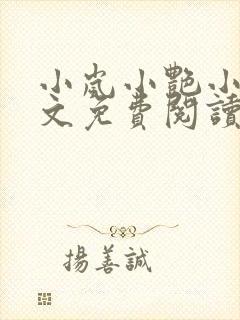 小嵐小艷小
文免費閱讀
揚善誠